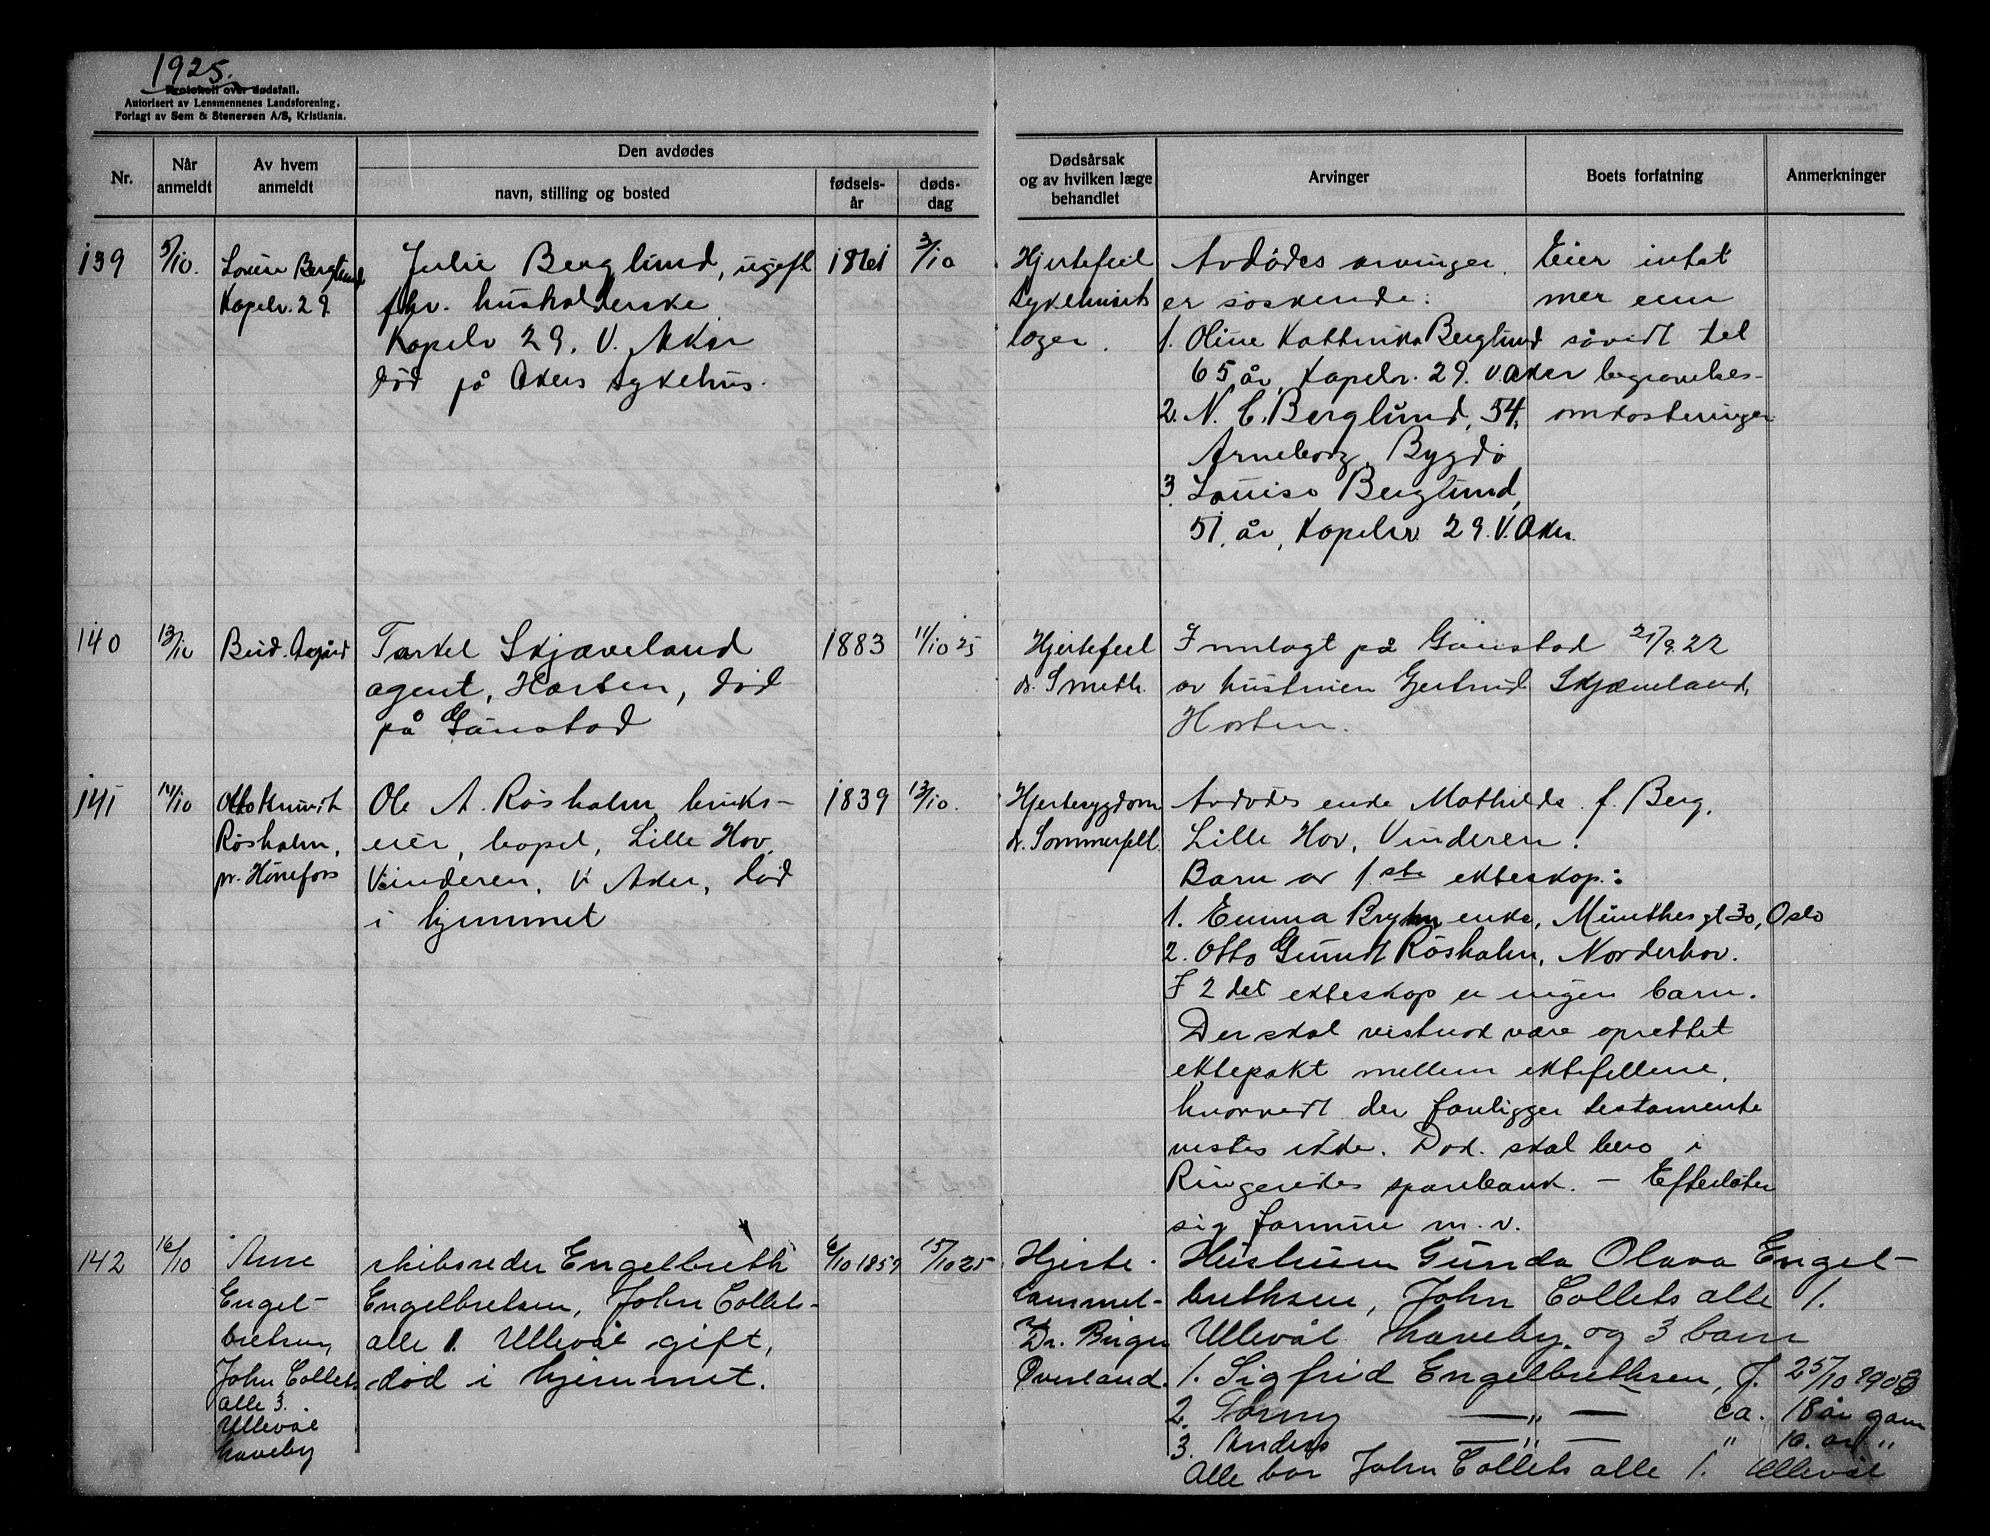 1925.
Protokoll over dødsfall.
Autorisert av Lensmennenes Landsforening.
Forlagt av Sem & Stenersen A/S, Kristiania.
Nr.
Når anmeldt
Av hvem anmeldt
Den avdødes
navn, stilling og bosted
fødsels-år
døds-dag
Dødsårsak og av hvilken læge behandlet
Arvinger
Boets forfatning
Anmerkninger
139
5/10.
Louise Berglund
Kapelv. 29.
Julie Berglund, ugift
fhv. husholderske
Kapelv 29. V. Aker
død på Akers sykehus.
1861
3/10
Hjertefeil
sykehusets
læger.
Avdødes arvinger
er søskende:
1. Oline Kathrine Berglund
65 år, Kapelv. 29. V. Aker
2. N. C. Berglund, 54,
Arneborg, Bygdø
3. Louise Berglund,
51 år, Kapelv. 29. V. Aker.
Eier intet
mer enn
såvidt til
begravelses-
omkostninger
140
13/10
Torkel Skjæveland
agent, Horten, død
på Gaustad
1883
11/10 25
Hjertefeil
dr. Smeth.
Innlagt på Gaustad 21/9.22
av hustruen Gjertrud Skjæveland,
Horten.
141
14/10
Otto
Røsholm,
pr. Hønefoss
Ole A. Røsholm bruks-
eier, bopel, Lille Hov,
Vinderen, V. Aker, død
i hjemmet
1839
13/10.
Hjertesygdom
dr. Sommerfelt.
Avdødes enke Mathilde f. Berg,
Lille Hov, Vinderen.
Barn av 1.ste ekteskap:
1. Emma Bryhn enke, Munthes gt 30, Oslo
2. Otto Gundt Røsholm, Norderhov.
I 2det ekteskap er ingen barn.
Der skal vistnok være oprettet
ektepakt mellem ektefellene,
hvorvidt der foreligger testamente
vites ikke. Dok. skal bero i
Ringerikes sparebank. — Efterlater
sig formue m. v.
142
16/10
Arne
Engel-
bretsen,
John Collets
alle 3.
Ullevål
haveby
skibsreder Engelbreth
Engelbretsen, John Collets-
alle 1. Ullevål gift,
død i hjemmet.
6/10 1859
15/10 25
Hjerte-
lammel-
se
Dr. Birger
Øverland.
Hustruen Gunda Olava Engel-
brethsen, John Collets alle 1.
Ullevål haveby og 3 barn
1. Sigfrid Engelbrethsen, f. 25/10 1903
2. Torny — „ — ca. 18 år gam
3. Anders — „ — „ 16 år „
Alle bor John Collets alle 1. Ullevål